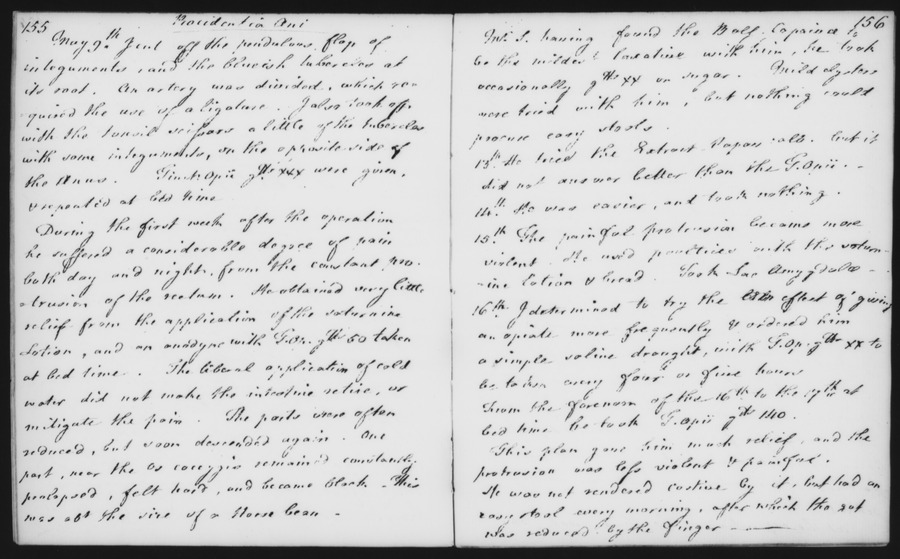 155
Procidentia Ani
May 7th I cut off the pendulous flap of
integuments, and the blueish tubercles at
its root. An artery was divided, which re-
quired the use of a ligature. I also took off
with the tonsil scissors a little of the tubercles
with some integuments, on the opposite side of
the Anus. Tinct: Opii gtts xxx were given,
& repeated at bed time
During the first week after the operation
he suffered a considerable degree of pain
both day and night, from the constant pro-
-trusion of the rectum. He obtained very little
relief from the application of the saturnine
Lotion, and an anodyne with T. Op. gtts 60 taken
at bed time. The liberal application of cold
water did not make the intestine retire, or
mitigate the pain. The parts were often
reduced, but soon descended again. One
part, near the os coccygis remained constantly
prolapsed, felt hard, and became black. This
was abt the size of a Horse bean -
156
Mr. S. having found the Bals. Capaivæ to
be the mildest laxative with him, he took
occasionally gtts xx on sugar. Mild clysters
were tried with him, but nothing could
procure easy stools.
13th He tried the Extract Papav: alb. but it
did not answer better than the T. Opii. -
14th He was easier, and took nothing.
15th The painful protrusion became more
violent. He used poultices with the saturn-
-ine Lotion & bread. Took Lac Amygdalæ -
16th I determined to try the effect of giving
an opiate more frequently & ordered him
a simple saline draught, with T. Op. gtts xx to
be taken every four or five hours
From the forenoon of the 16th to the 17th at
bed time he took T. Opii gtts 140.
This plan gave him much relief, and the
protrusion was less violent & painful.
He was not rendered costive by it, but had an
easy stool every morning, after which the gut
was reduced by the finger -